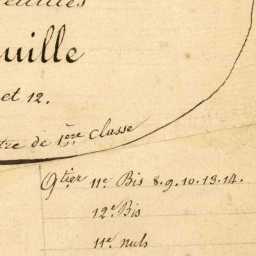 euilles
uille
et 12.
tre de 1ère Classe
9tier 11e Bis 8.9.10.13.14.
12e Bis
11e nuls